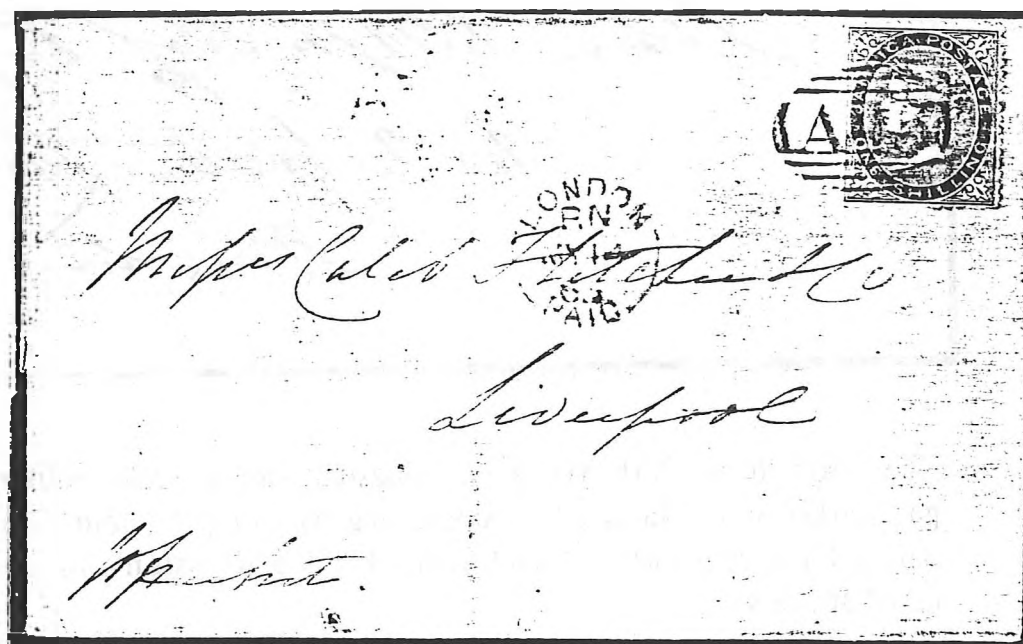 JAMAICA POSTAGE ONE SHILLING
A
LONDON
PAID
Messrs Caleb Fletcher & Co
Liverpool